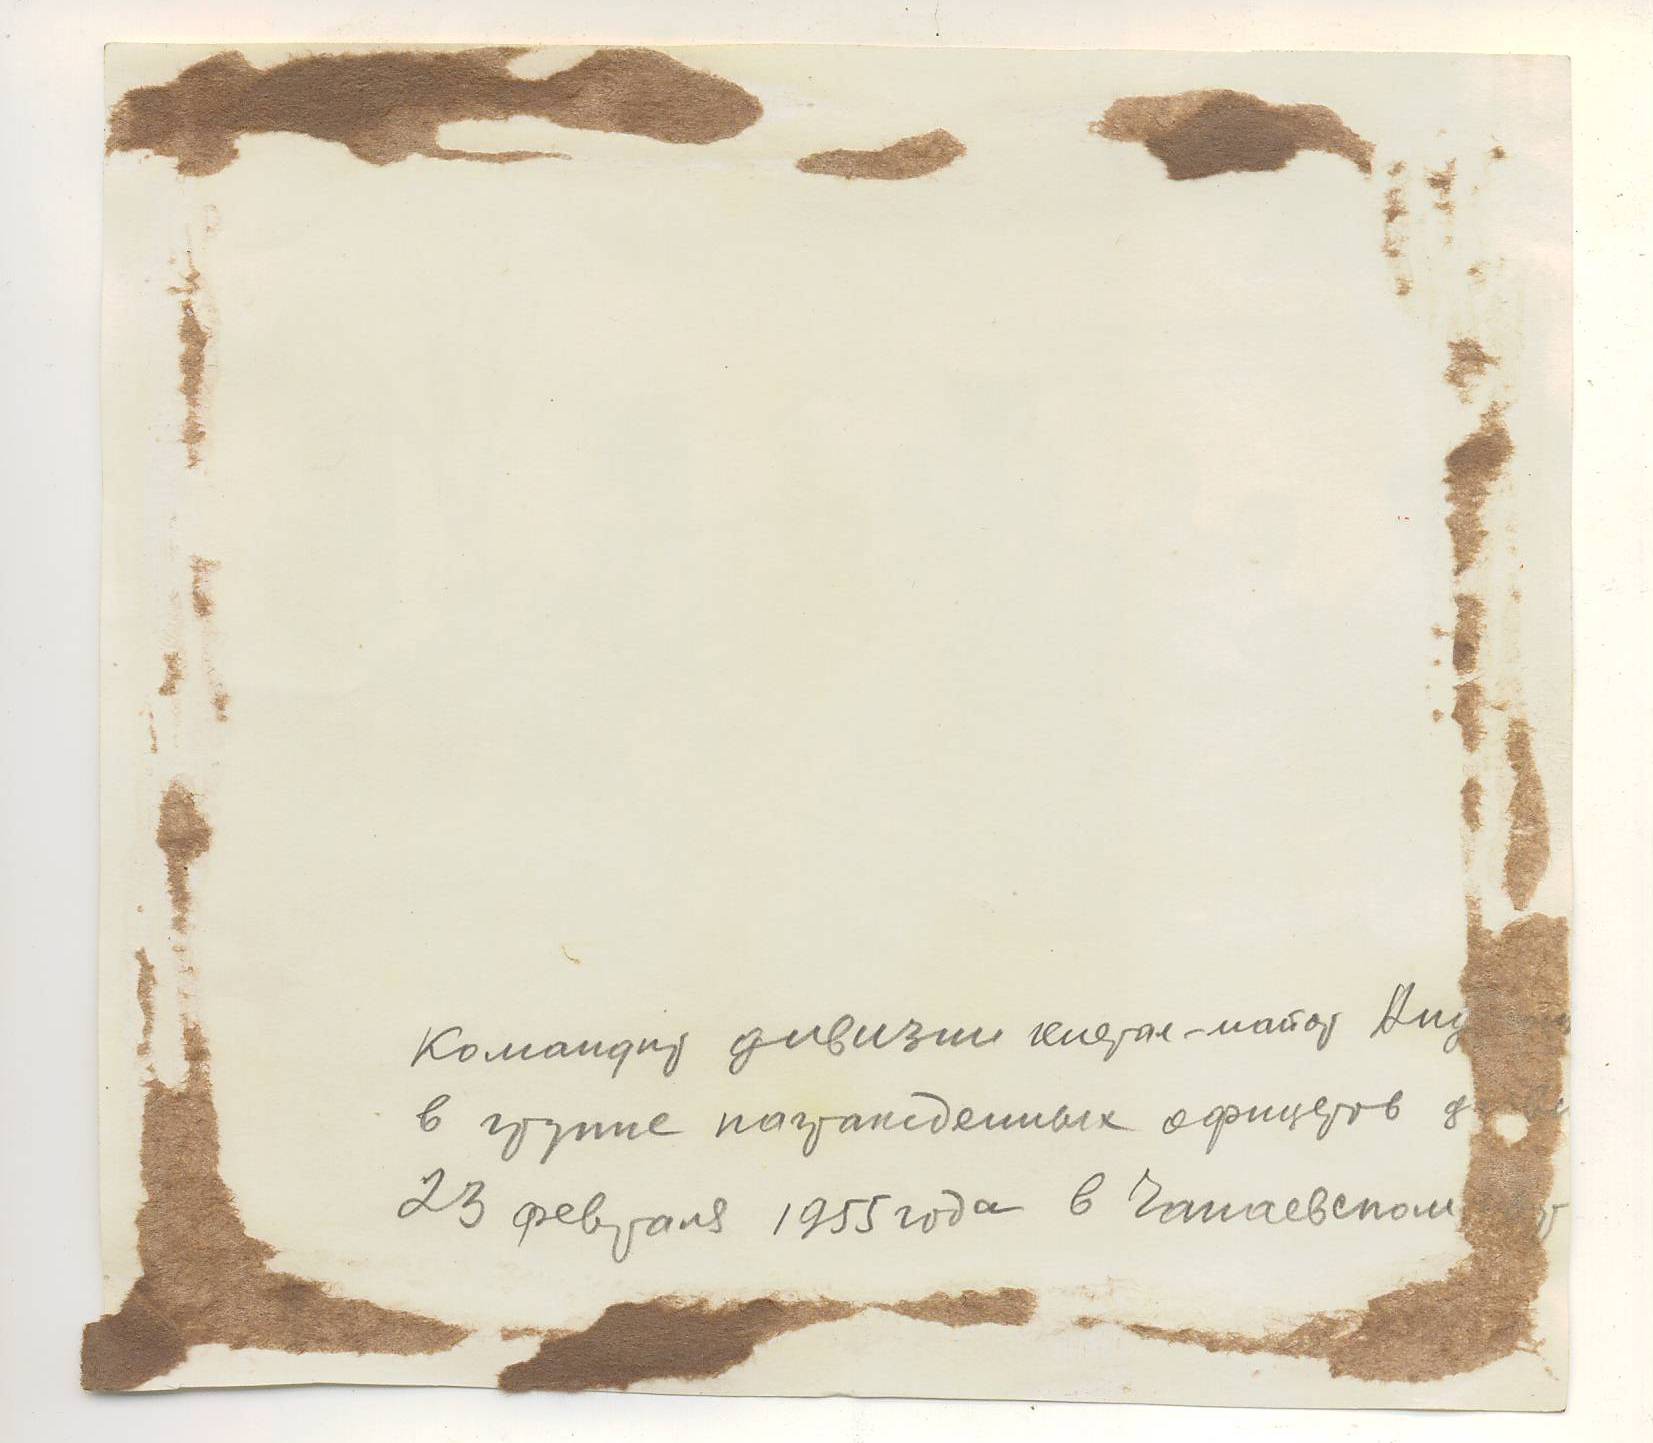 Командир дивизии генерал-майор
в группе награжденных офицеров
23 февраля 1955 года в Чапаевском